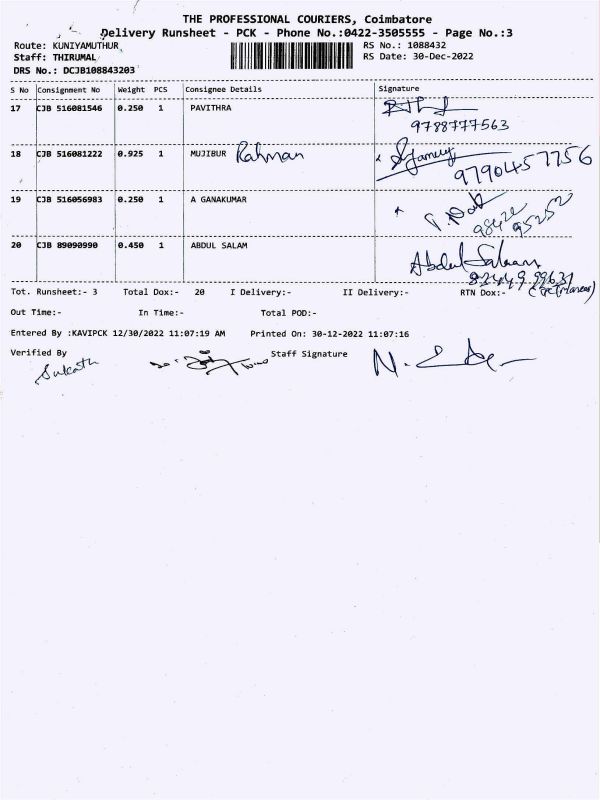 THE PROFESSIONAL COURIERS, Coimbatore
Delivery Runsheet - PCK - Phone No.:0422-3505555 - Page No.:3
Route: KUNIYAMUTHUR RS No.: 1088432
Staff: THIRUMAL RS Date: 30-Dec-2022
DRS No.: DCJB108843203
S No Consignment No Weight PCS Consignee Details Signature
17 CJB 516081546 0.250 1 PAVITHRA
9788777563
18 CJB 516081222 0.925 1 MUJIBUR Rahman
9790457756
19 CJB 516056983 0.250 1 A GANAKUMAR
98422 95252
20 CJB 89090990 0.450 1 ABDUL SALAM
Abdul Salaam
Tot. Runsheet:- 3 Total Dox:- 20 I Delivery:- II Delivery:- RTN Dox:-
Out Time:- In Time:- Total POD:-
Entered By :KAVIPCK 12/30/2022 11:07:19 AM Printed On: 30-12-2022 11:07:16
Verified By Staff Signature